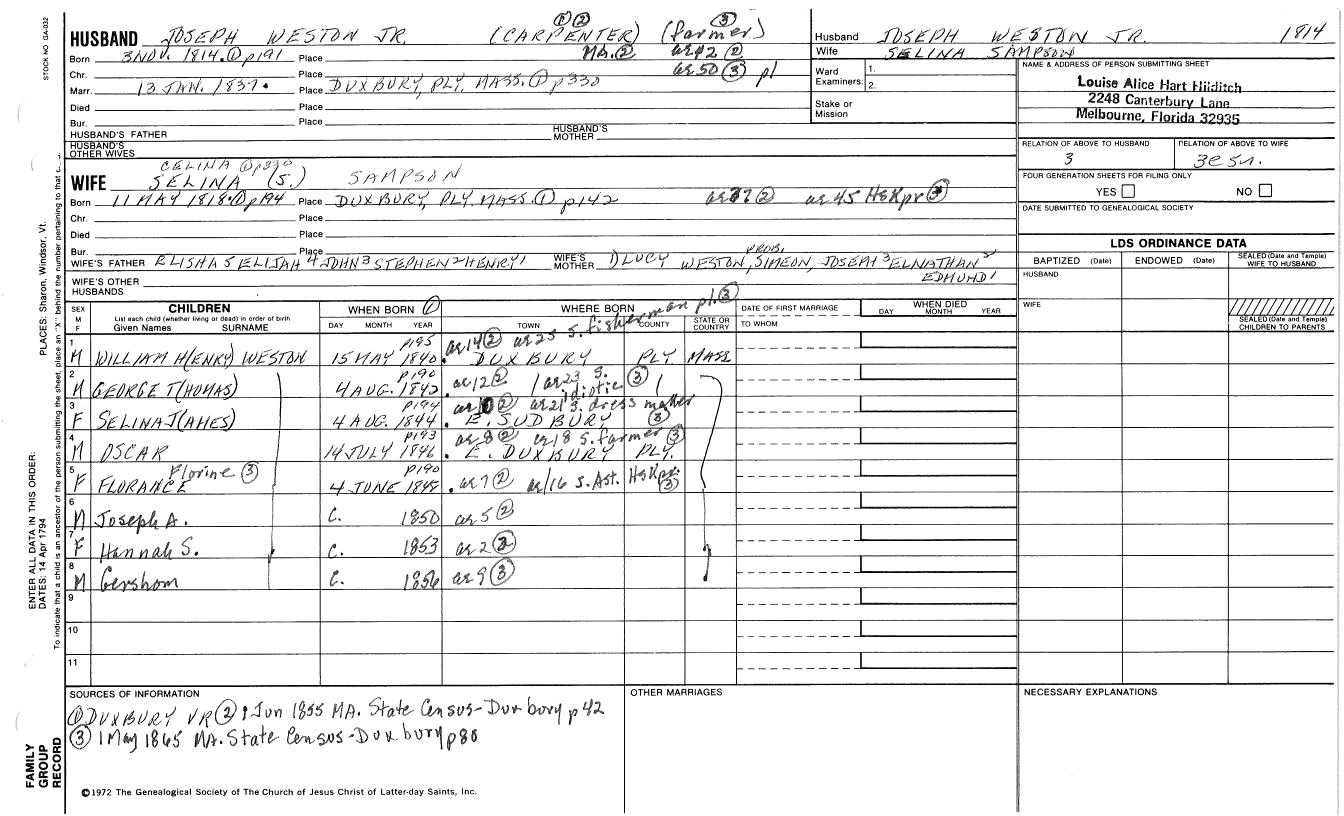 STOCK NO. GA-032
HUSBAND JOSEPH WESTON JR. (CARPENTER) ① ② (farmer) ③
Born 3 NOV. 1814. ① p191 Place MA. ② ae 42 ②
Chr. Place ae 50 ③ p1
Marr. 13 JAN. 1837. Place DUXBURY, PLY, MASS. ① p330
Died Place
Bur. Place
HUSBAND'S FATHER HUSBAND'S MOTHER
HUSBAND'S OTHER WIVES
CELINA ① p330
WIFE SELINA (S.) SAMPSON
Born 11 MAY 1818. ① p194 Place DUXBURY, PLY. MASS. ① p142 ae 37 ② ae 45 HsKpr ③
Chr. Place
Died Place
Bur. Place
WIFE'S FATHER ELISHA 5 ELIJAH 4 JOHN 3 STEPHEN 2 HENRY 1 WIFE'S MOTHER D LUCY WESTON, PROB. SIMEON, JOSEPH 3 ELNATHAN 2
EDMUND 1
WIFE'S OTHER HUSBANDS
Husband JOSEPH WESTON JR. 1814
Wife SELINA SAMPSON
Ward Examiners: 1.
2.
Stake or Mission
NAME & ADDRESS OF PERSON SUBMITTING SHEET
Louise Alice Hart Hilditch
2248 Canterbury Lane
Melbourne, Florida 32935
RELATION OF ABOVE TO HUSBAND RELATION OF ABOVE TO WIFE
3
FOUR GENERATION SHEETS FOR FILING ONLY
YES NO
DATE SUBMITTED TO GENEALOGICAL SOCIETY
LDS ORDINANCE DATA
BAPTIZED (Date) ENDOWED (Date) SEALED (Date and Temple) WIFE TO HUSBAND
HUSBAND
WIFE
SEALED (Date and Temple) CHILDREN TO PARENTS
SEX M F
CHILDREN
List each child (whether living or dead) in order of birth
Given Names SURNAME
WHEN BORN ①
DAY MONTH YEAR
WHERE BORN
TOWN COUNTY STATE OR COUNTRY
DATE OF FIRST MARRIAGE
TO WHOM
WHEN DIED
DAY MONTH YEAR
p195 ae 14 ② ae 25 S. fisherman p1. ③
1 M WILLIAM H(ENRY) WESTON 15 MAY 1840. DUXBURY PLY MASS
p190 ae 12 ② ae 23 S. idiotic ③
2 M GEORGE T(HOMAS) 4 AUG. 1842.
p194 ae 10 ② ae 21 S. dress maker ③
3 F SELINA J(AMES) 4 AUG. 1844. E. SUDBURY
p193 ae 8 ② ae 18 S. farmer ③
4 M OSCAR 14 JULY 1846. E. DUXBURY PLY.
Florine ③ p190
5 F FLORANCE 4 JUNE 1848. ae 7 ② ae 16 S. Ast. HsKpr. ③
6 M Joseph A. C. 1850 ae 5 ②
7 F Hannah S. C. 1853 ae 2 ②
8 M Gershom C. 1856 ae 9 ③
9
10
11
SOURCES OF INFORMATION
① DUXBURY VR ② 1 Jun 1855 MA. State Census-Duxbury p42
③ 1 May 1865 MA. State Census-Duxbury p80
OTHER MARRIAGES
NECESSARY EXPLANATIONS
©1972 The Genealogical Society of The Church of Jesus Christ of Latter-day Saints, Inc.
FAMILY GROUP RECORD
ENTER ALL DATA IN THIS ORDER:
DATES: 14 Apr 1794
PLACES: Sharon, Windsor, Vt.
To indicate that a child is an ancestor of the person submitting the sheet, place an "X" behind the number pertaining to that